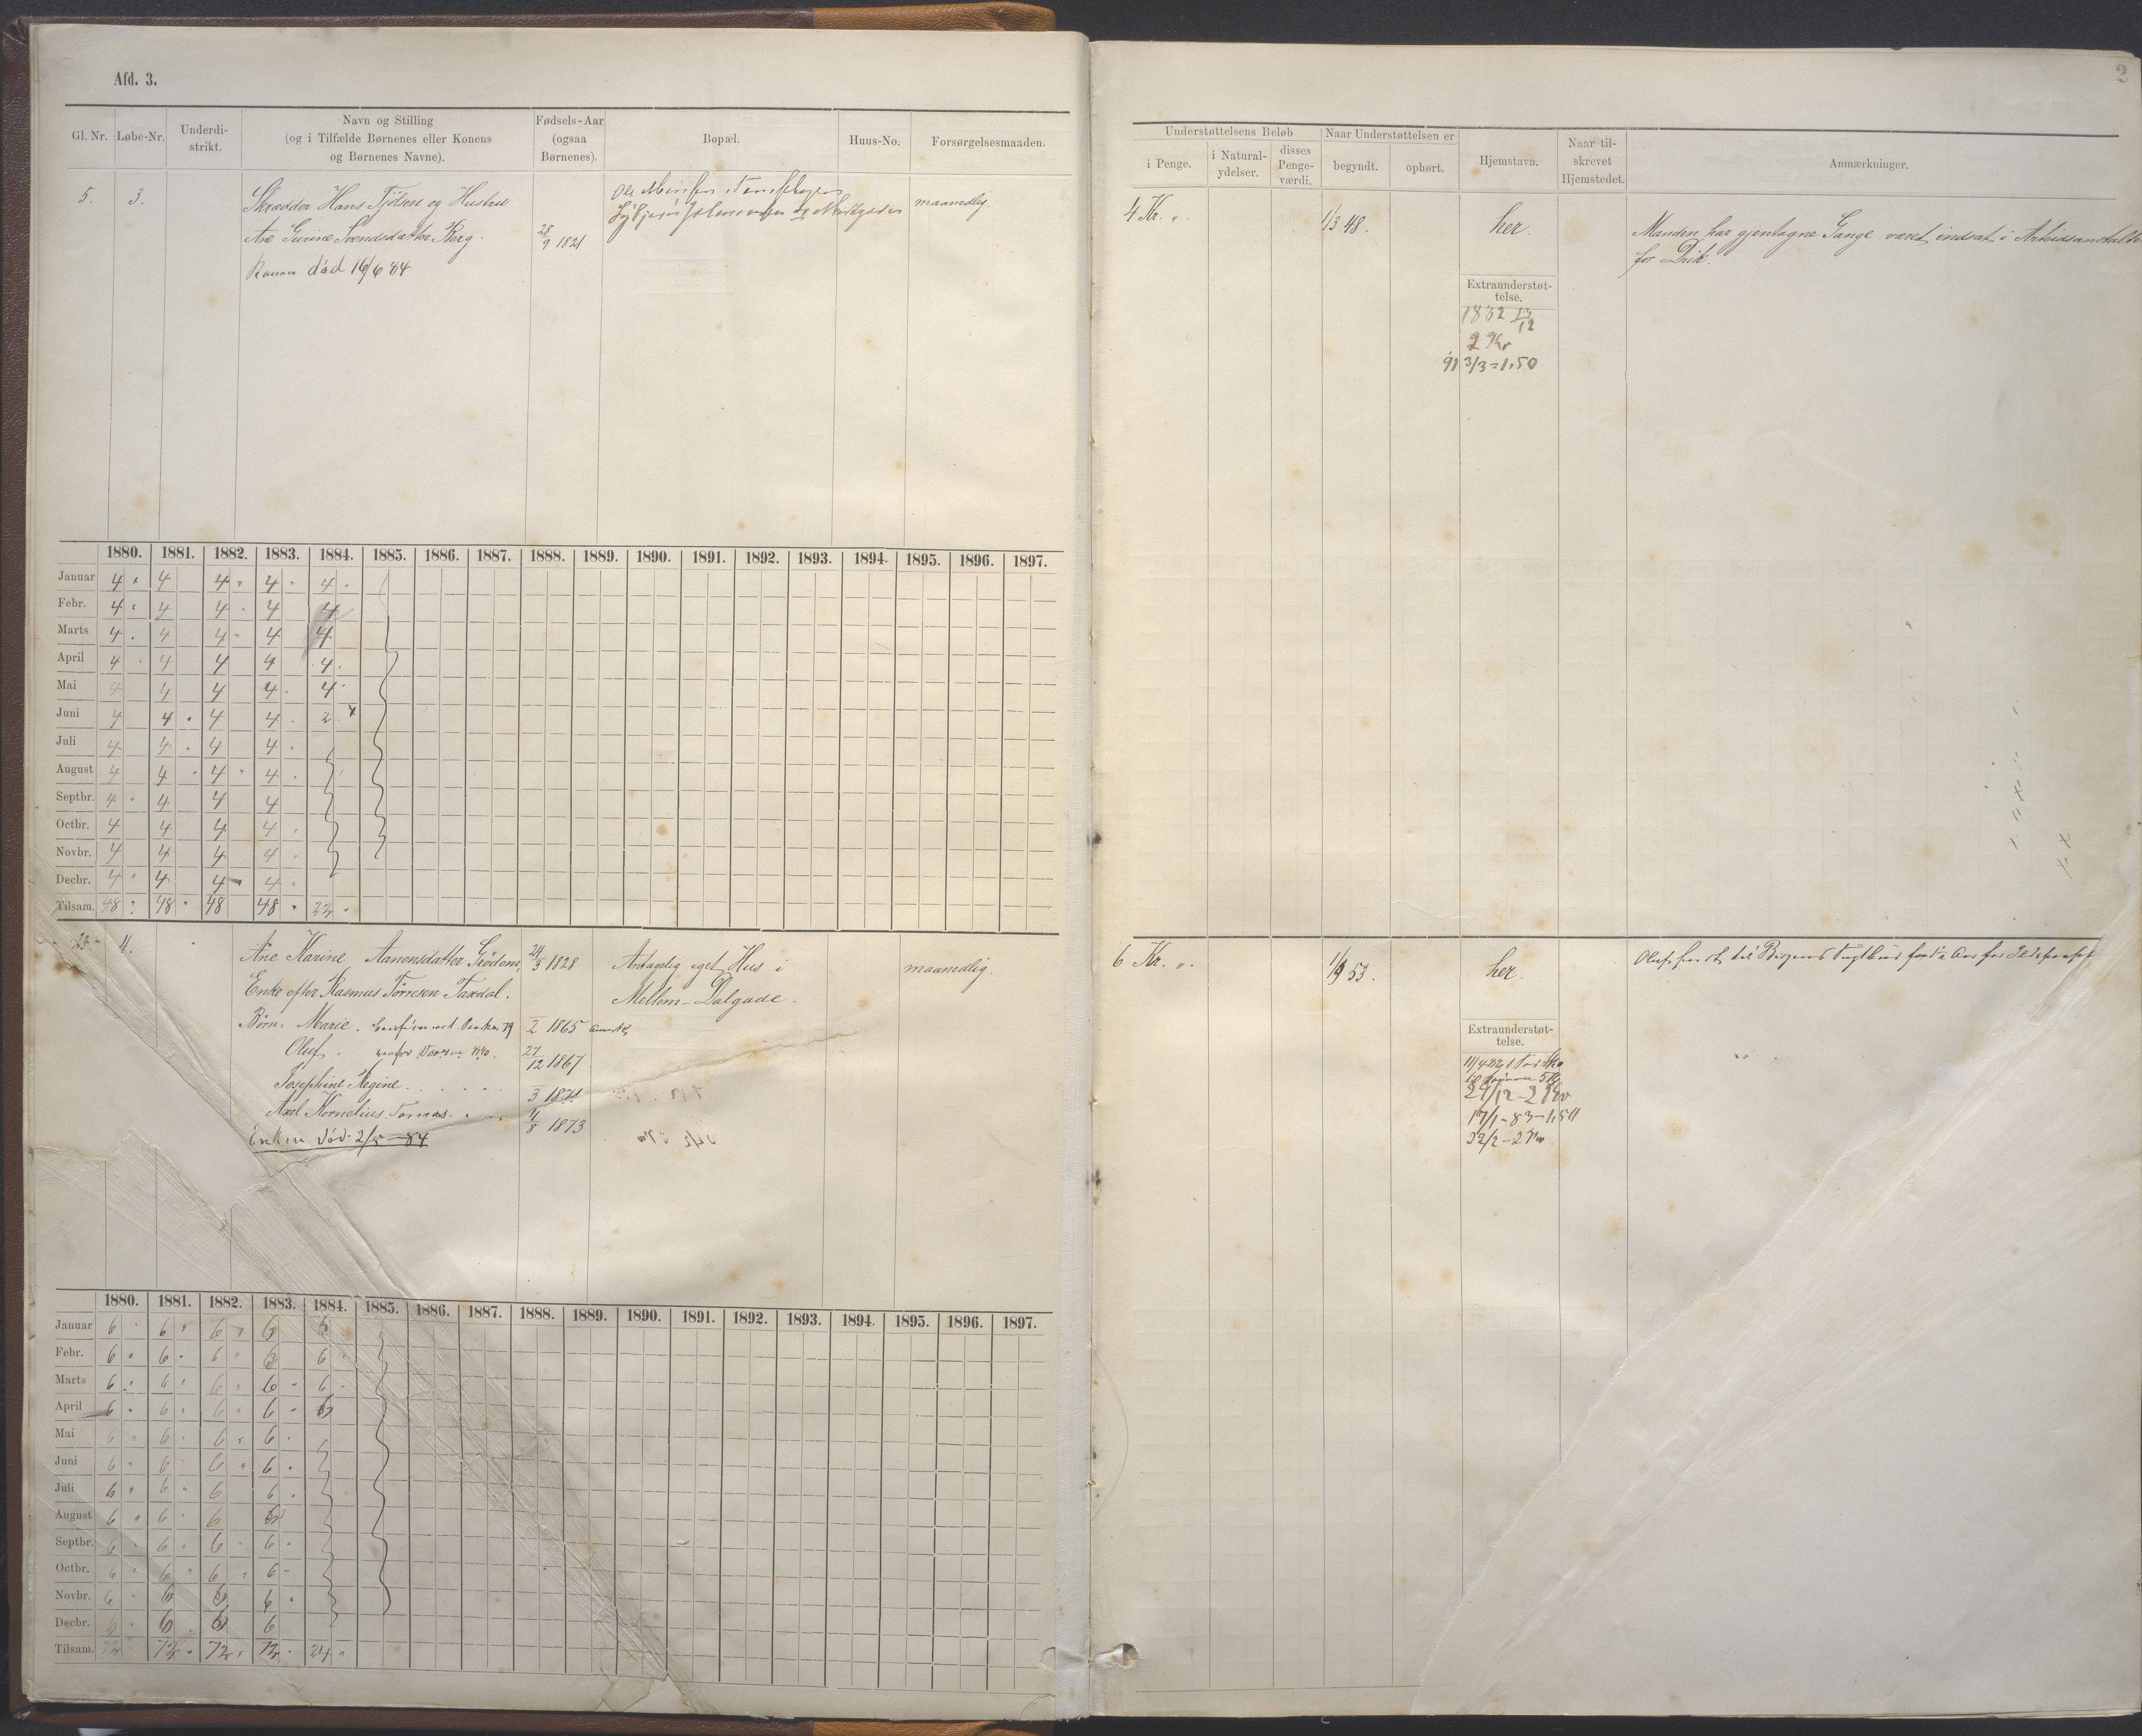 Afd. 3.
2
Gl. Nr. Løbe-Nr. Underdi-strikt. Navn og Stilling (og i Tilfælde Børnenes eller Konens og Børnenes Navne). Fødsels-Aar (ogsaa Børnenes). Bopæl. Huus-No. Forsørgelsesmaaden.
Understøttelsens Beløb i Penge. i Natural-ydelser. disses Penge-værdi. Naar Understøttelsen er begyndt. ophørt. Hjemstavn. Naar til-skrevet Hjemstedet. Anmærkninger.
5. 3. Skrædder Hans Tjölsen og Hustru
Ane Svendsdatter Berg. 28/9 1821
død 16/6 84
maanedlig.
4 Kr. „. 1/3 48. her.
Manden har gjentagne Gange været indsat i
for Drik.
Extraunderstøt-
telse.
2 Kr
91 3/3 = 1.50
1880. 1881. 1882. 1883. 1884. 1885. 1886. 1887. 1888. 1889. 1890. 1891. 1892. 1893. 1894. 1895. 1896. 1897.
Januar 4 4 4 4 4
Febr. 4 4 4 4 4
Marts 4 4 4 4 4
April 4 4 4 4 4
Mai 4 4 4 4 4
Juni 4 4 4 4 2
Juli 4 4 4 4
August 4 4 4 4
Septbr. 4 4 4 4
Octbr. 4 4 4 4
Novbr. 4 4 4 4
Decbr. 4 4 4 4
Tilsam. 48 48 48 48 22
4. Ane Karine Aanensdatter Grödem, 24/3 1828 Antagelig eget Hus i maanedlig.
Enke efter Rasmus Törresen Taxdal. Mellem-Dalgade.
Börn: Marie. 2 1865
Oluf. 27/12 1867
Josephine Regine 3 1871
Axel Kornelius Tomas. 11/8 1873
Enken död 2/5 - 84
6 Kr. „. 1/9 53. her.
Extraunderstøt-
telse.
17/1 - 83 - 1,50
1880. 1881. 1882. 1883. 1884. 1885. 1886. 1887. 1888. 1889. 1890. 1891. 1892. 1893. 1894. 1895. 1896. 1897.
Januar 6 6 6 6 6
Febr. 6 6 6 6 6
Marts 6 6 6 6 6
April 6 6 6 6 6
Mai 6 6 6 6
Juni 6 6 6 6
Juli 6 6 6 6
August 6 6 6 6
Septbr. 6 6 6 6
Octbr. 6 6 6 6
Novbr. 6 6 6 6
Decbr. 6 6 6 6
Tilsam. 72 72 72 72 24